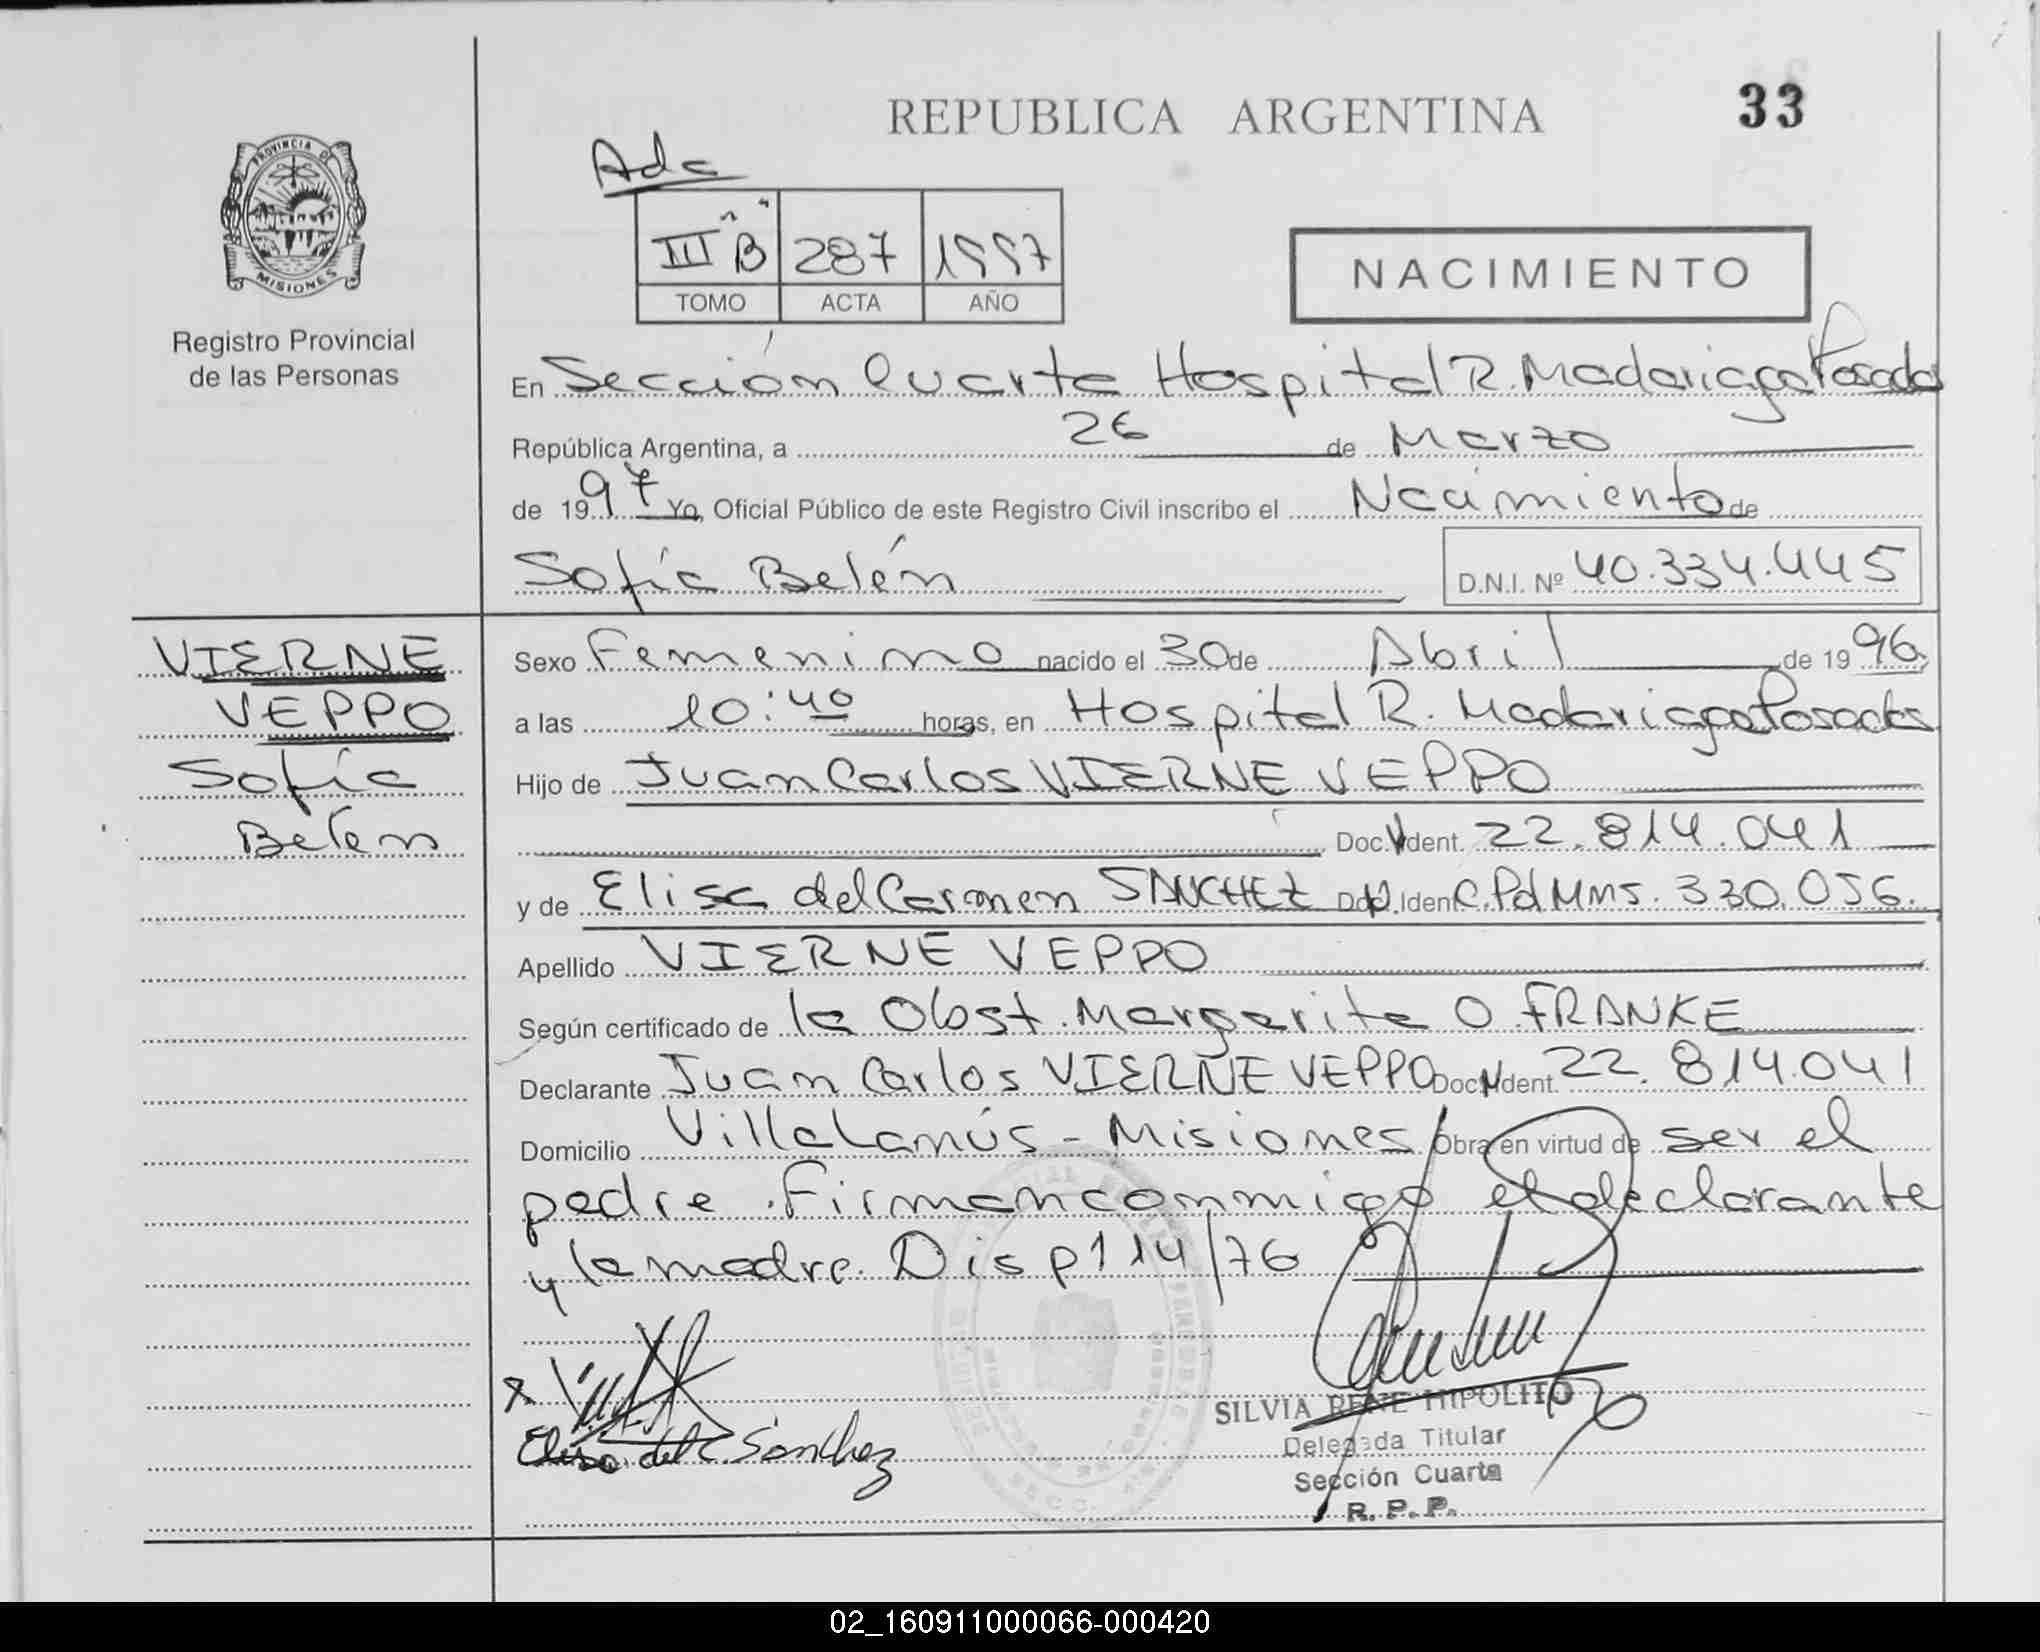 REPUBLICA ARGENTINA
33
PROVINCIA DE
MISIONES
Registro Provincial
de las Personas
Adc
III "B" 287 1997
TOMO ACTA AÑO
NACIMIENTO
En Sección Cuarta Hospital R. Madariaga Posadas
República Argentina, a 26 de Marzo
de 1997 Yo, Oficial Público de este Registro Civil inscribo el Nacimiento de
Sofía Belén D.N.I. Nº 40.334.445
VIERNE
VEPPO
Sofía
Belén
Sexo Femenino nacido el 30 de Abril de 1996
a las 10:40 horas, en Hospital R. Madariaga Posadas
Hijo de Juan Carlos VIERNE VEPPO
Doc. Ident. 22.814.041
y de Elisa del Carmen SANCHEZ Doc. Ident. C.Pd Mns. 330.056.
Apellido VIERNE VEPPO
Según certificado de la Obst. Margarita O. FRANKE
Declarante Juan Carlos VIERNE VEPPO Doc. Ident. 22.814.041
Domicilio Villa Lanús - Misiones Obra en virtud de ser el
padre. Firman conmigo el declarante
y la madre. Disp 114/76
Elisa del C. Sánchez
SILVIA RENE HIPOLITO
Delegada Titular
Sección Cuarta
R. P. P.
02_160911000066-000420